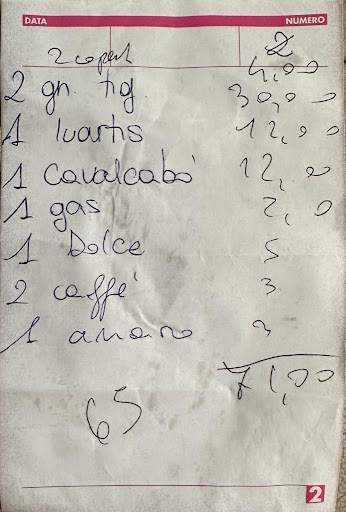 DATA NUMERO
2
2 copert 4,00
2 gn. tig. 30,00
1 luartis 12,00
1 Cavalcabò 12,00
1 gas 2,00
1 Dolce 5
2 caffé 3
1 amaro 3
71,00
65
2